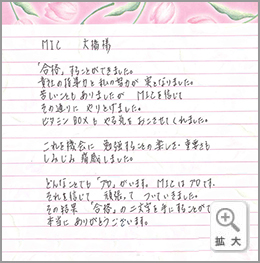 MIC 大橋様
「合格」することができました。
貴社の指導力と私の努力が実となりました。
苦しいこともありましたが MICを信じて
その通りに やりとげました。
ビタミンBOXも やる気をおこさせてくれました。
これを機会に 勉強することの楽しさ・重要さも
しみじみ痛感しました。
どんなことでも「プロ」がいます。MICはプロです。
それを信じて 頑張って ついていきました。
その結果 「合格」の二文字を手にすることがで
本当に ありがとうございます。
拡大